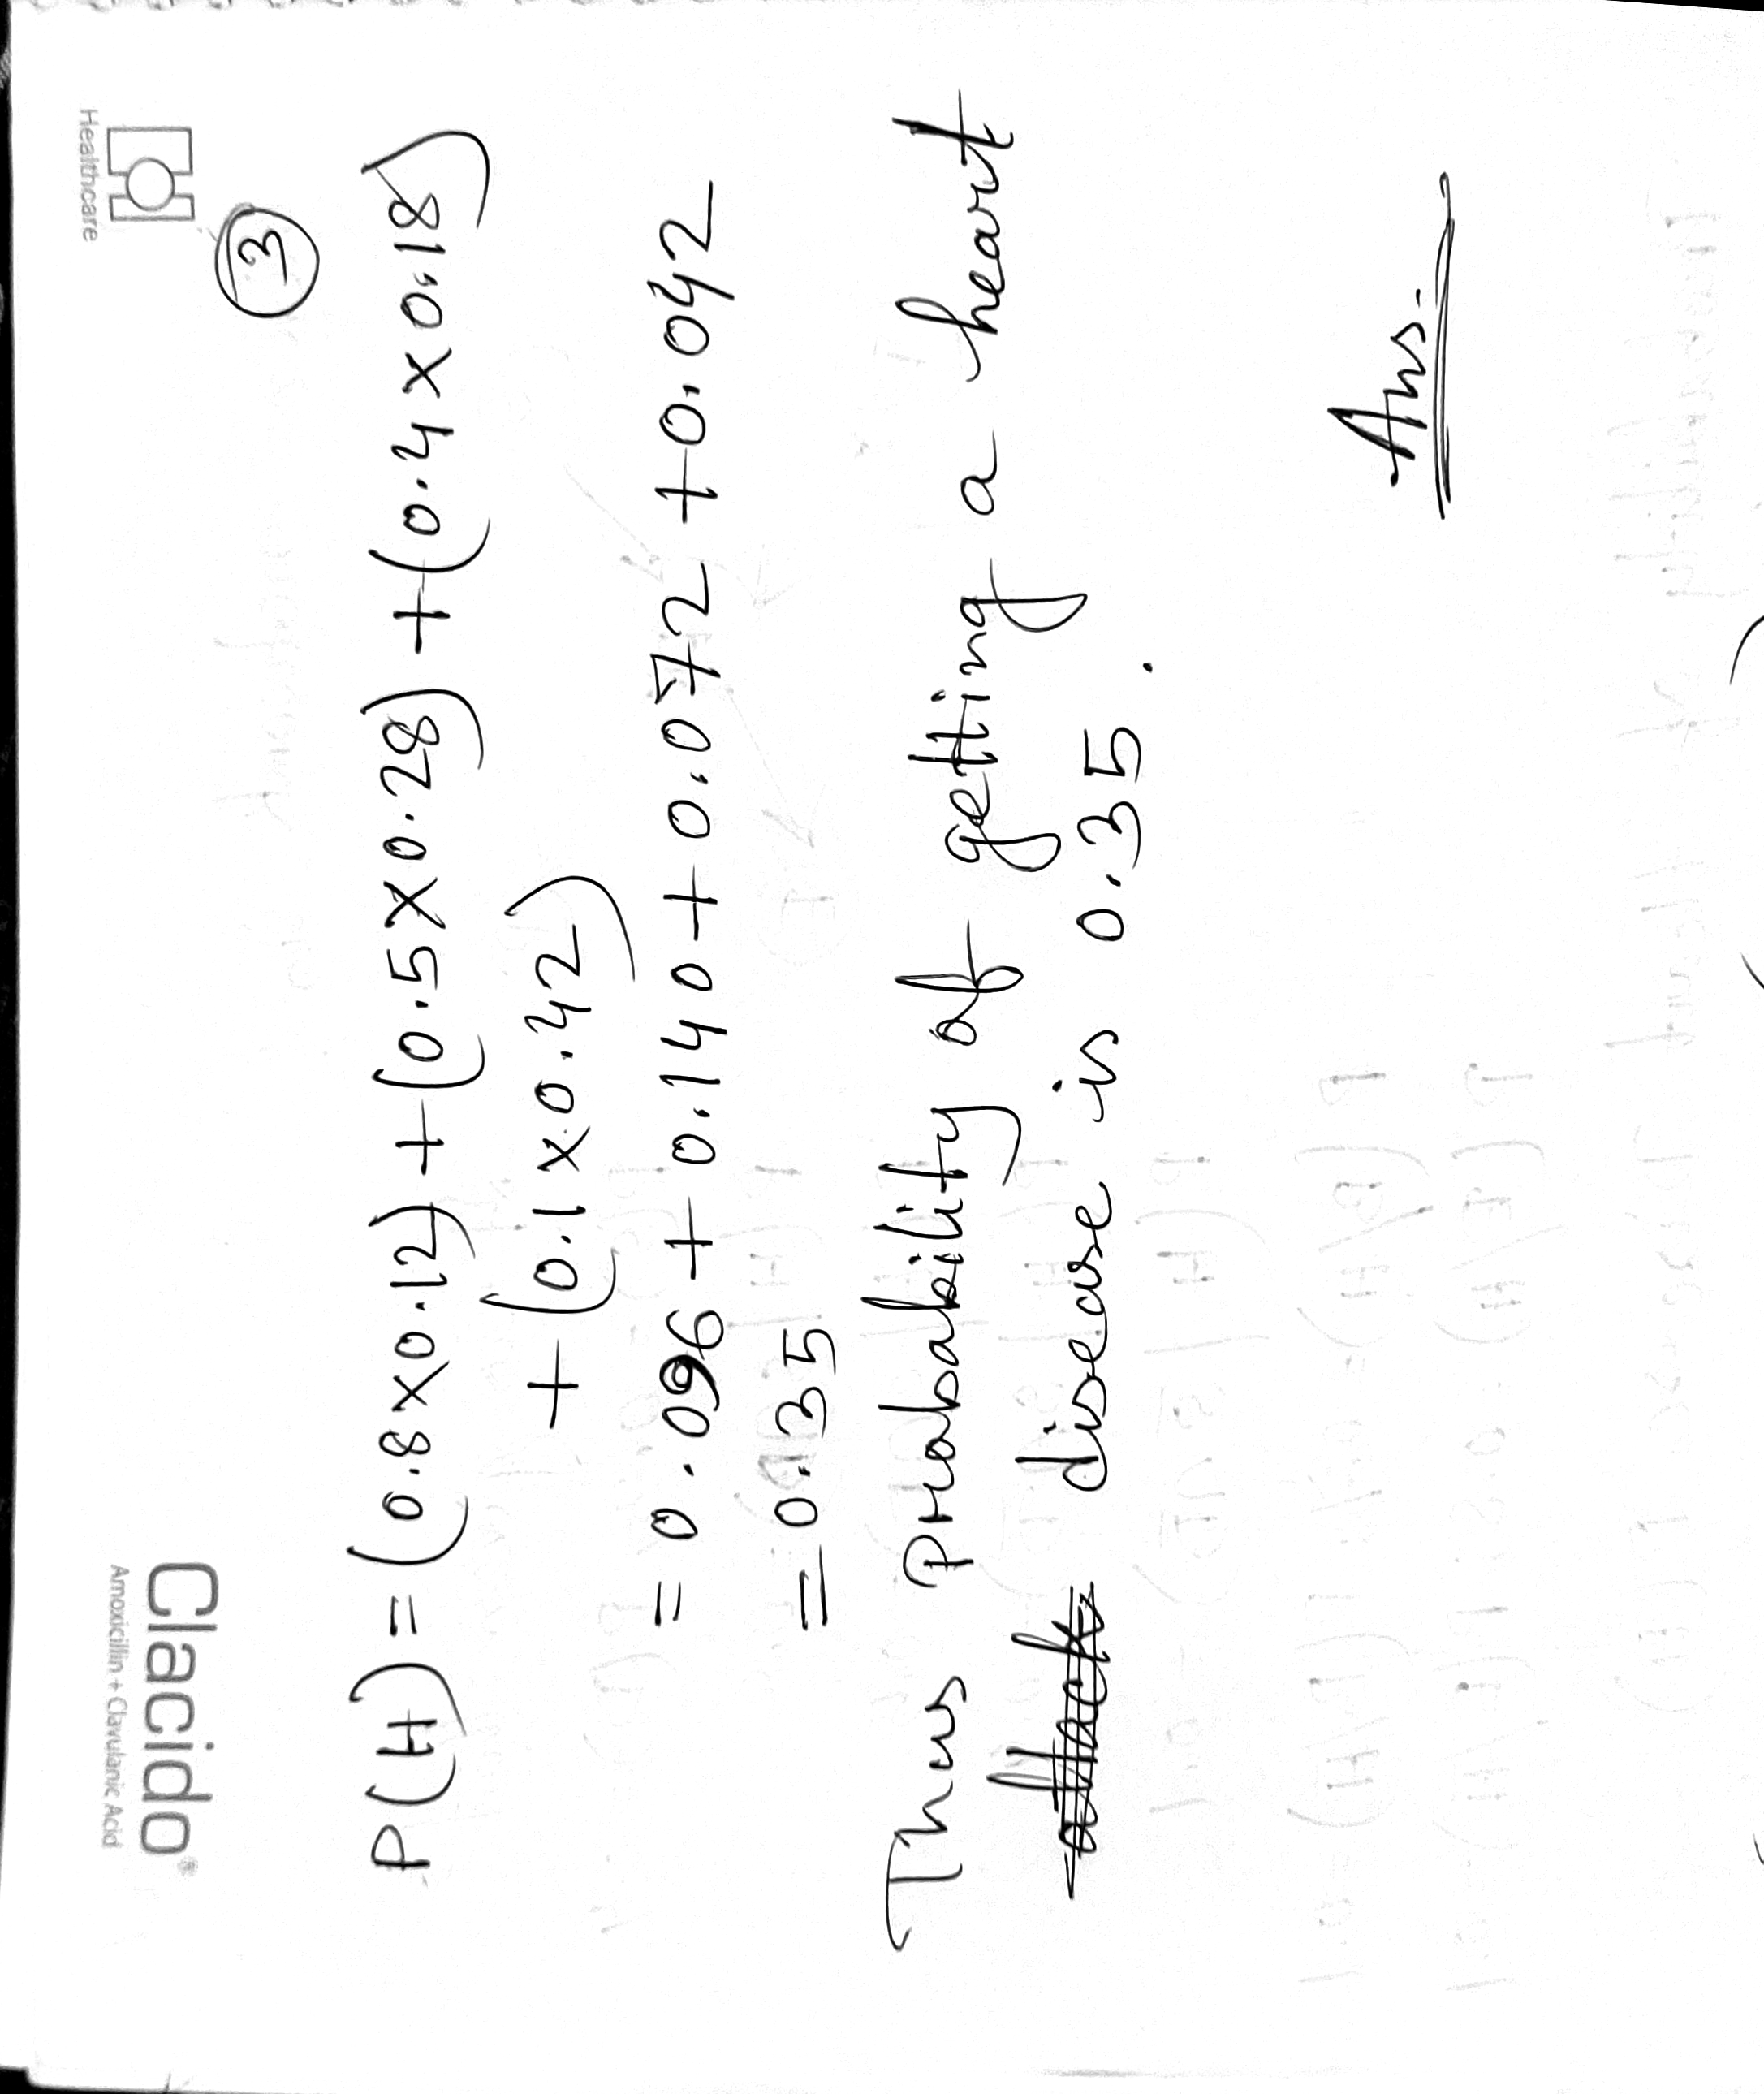 Healthcare
Clacido
Amoxicillin + Clavulanic Acid
3
P(H) = (0.8×0.12) + (0.5×0.28) + (0.4×0.18)
+ (0.1×0.42)
= 0.096 + 0.140 + 0.072 + 0.042
= 0.35
Thus Probability of getting a heart
disease is 0.35.
Ans.